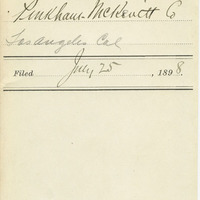 Pinkham & McKevitt Co
Los Angeles Cal
Filed July 25, 1898.